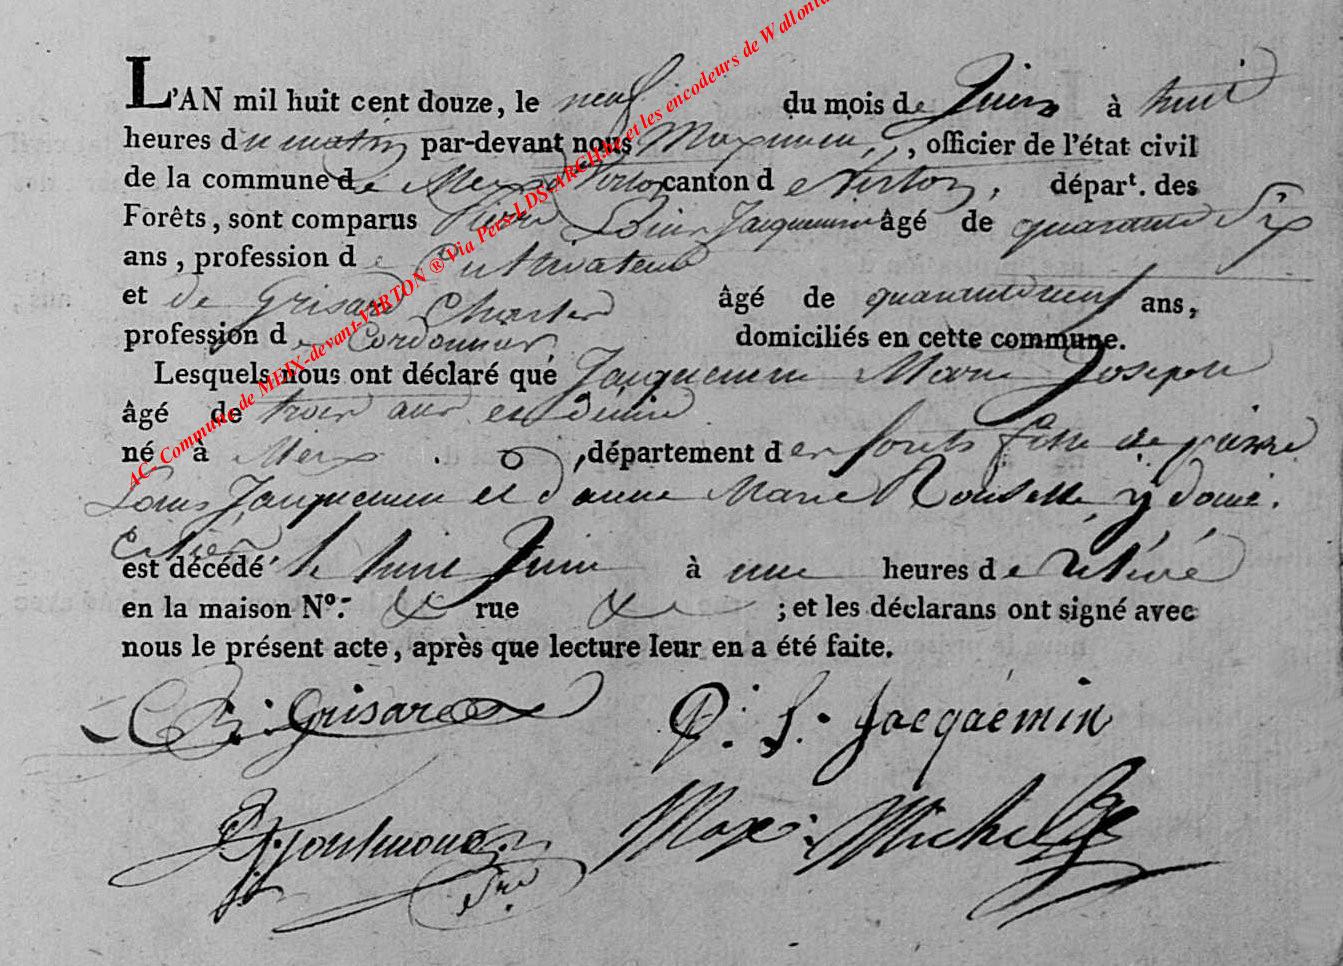 L'AN mil huit cent douze, le neuf du mois de Juin à huit
heures du matin par-devant nous Maximin, officier de l'état civil
de la commune de Meix d Virton canton de Virton, départ. des
Forêts, sont comparus Pierre Louis Jacquemin âgé de quarante Six
ans, profession de Cultivateur
et de Grisard Charles âgé de quarante neuf ans,
profession de Cordonnier domiciliés en cette commune.
Lesquels nous ont déclaré que Jacquemin Marie Joseph
âgé de trois ans et demie
né à Meix, département des forets fille de pierre
Louis Jacquemin et d'anne Marie Rouselle, y domi.
ciliés
est décédé le huit Juin à une heures de relevé
en la maison N°.- & rue & ; et les déclarans ont signé avec
nous le présent acte, après que lecture leur en a été faite.
Grisard P. L. Jacquemin
Max: Michel
Sre
AC. Commune de MEIX-devant-VIRTON ® Via Pers-LDS-ARCH. et les encodeurs de Wallonie